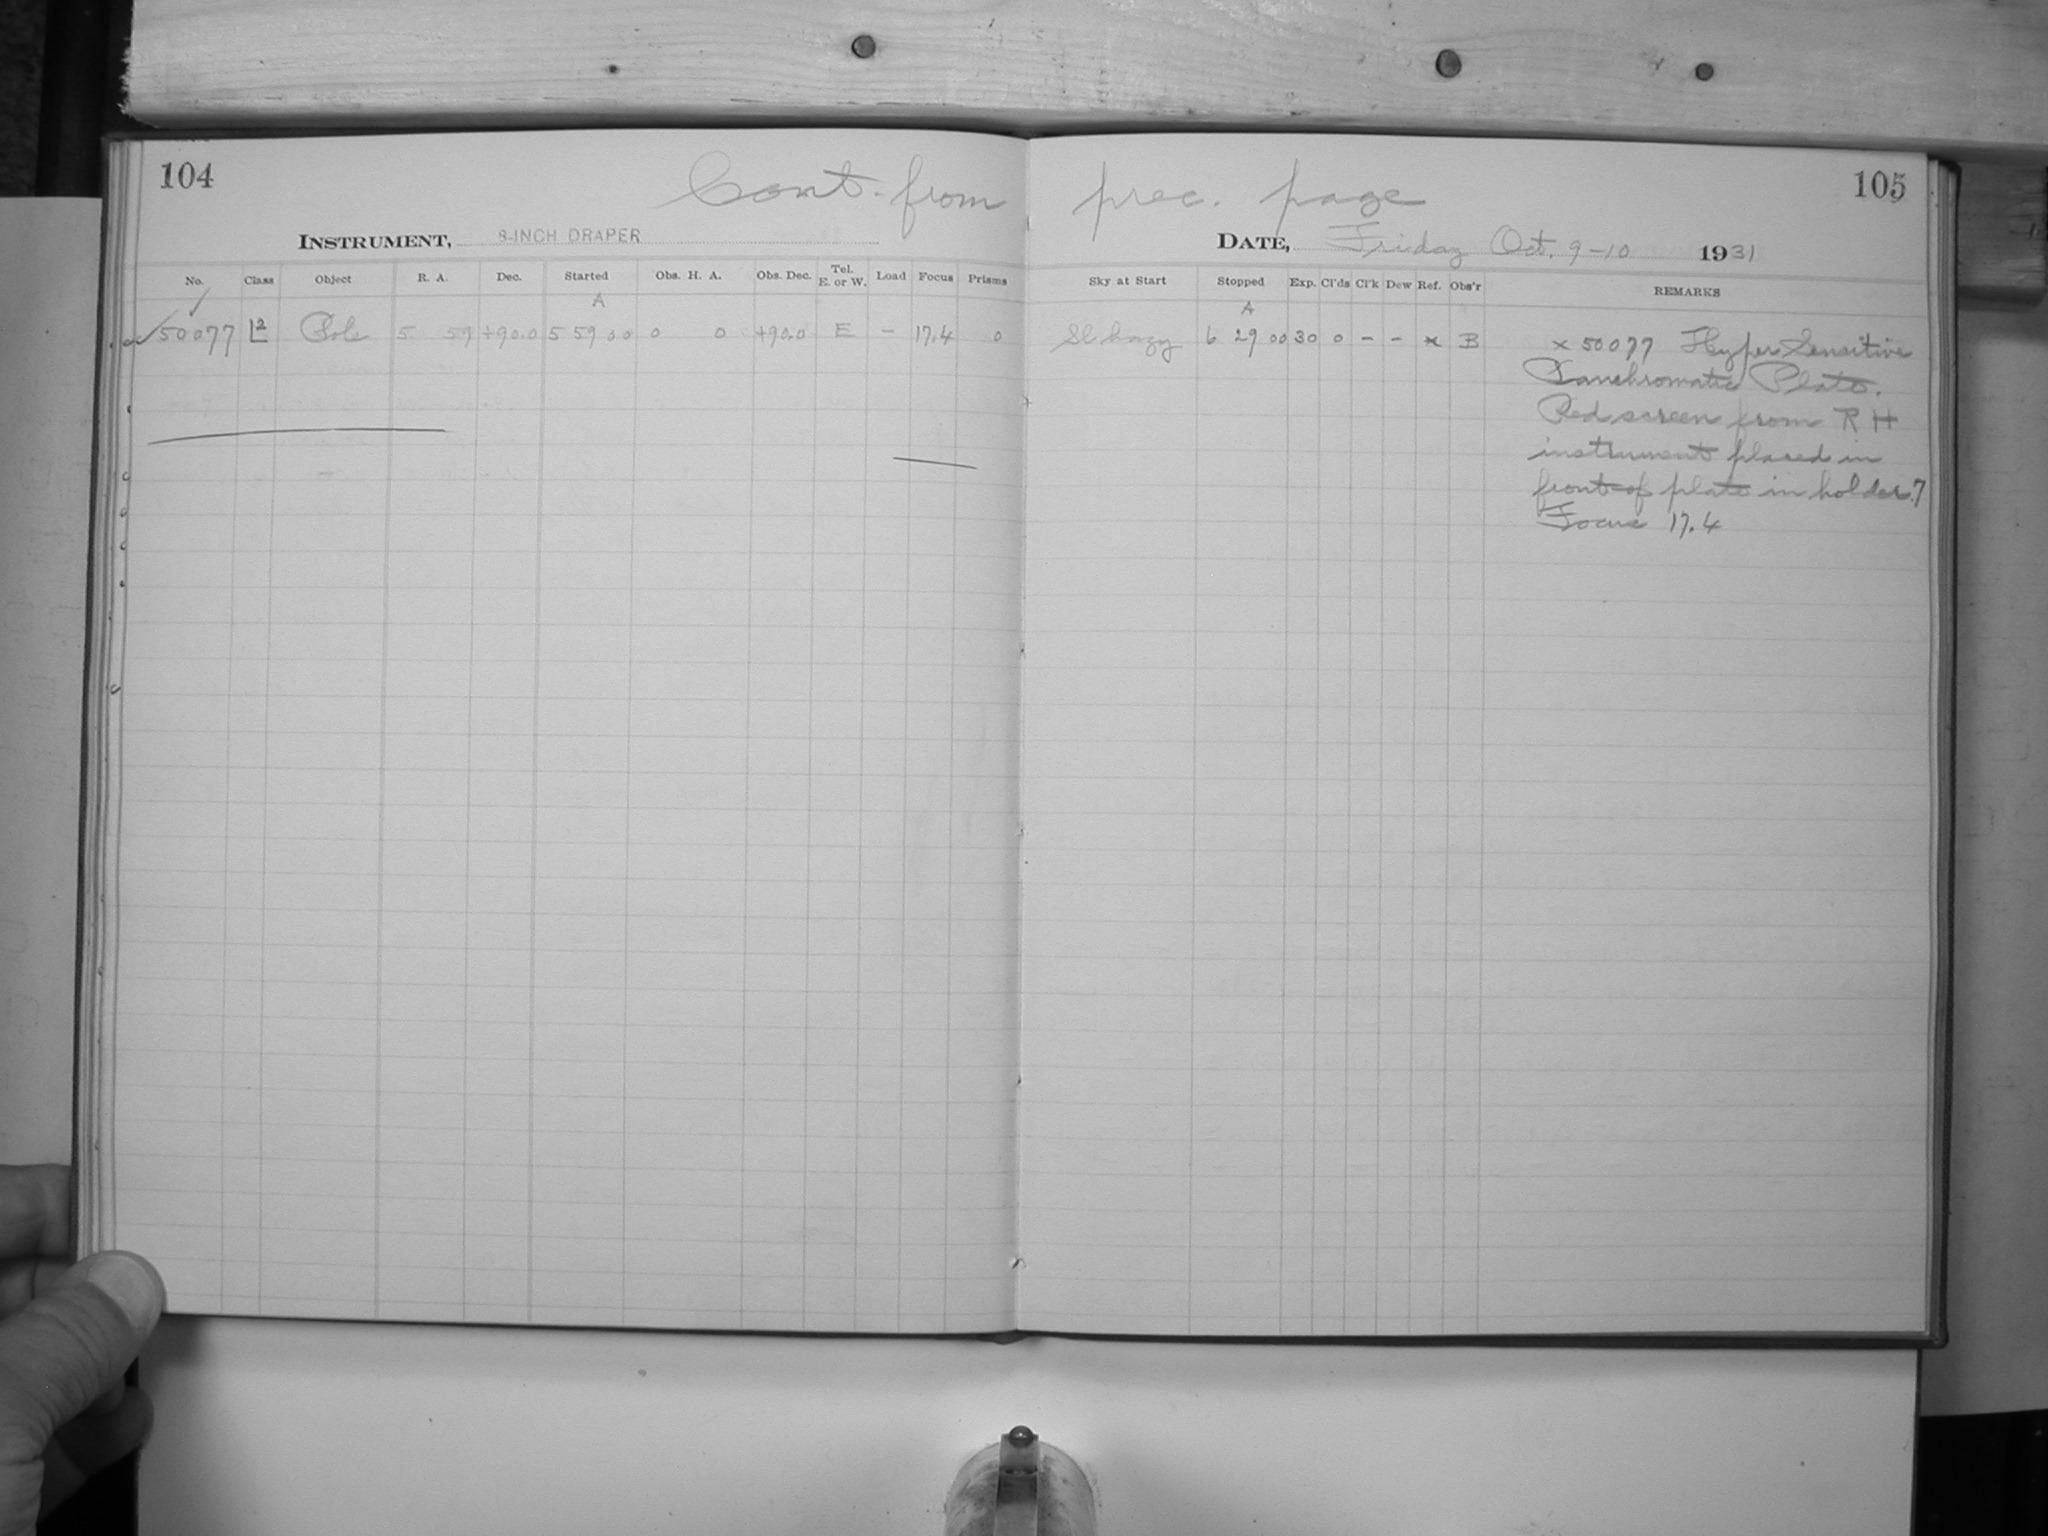 104
Cont. from prec. page
105
INSTRUMENT, 8-INCH DRAPER
DATE, Friday Oct. 9-10 1931
No. Class Object R. A. Dec. Started Obs. H. A. Obs. Dec. Tel. E. or W. Load Focus Prisms Sky at Start Stopped Exp. Cl'ds Cl'k Dew Ref. Obs'r REMARKS
A A
50077 L2 Pole 5 59 +90.0 5 59 00 0 0 +90.0 E - 17.4 0 Sl hazy 6 29 00 30 0 - - x B x 50077 Hyper Sensitive
Panchromatic Plate.
Red screen from R H
instrument placed in
front of plate in holder.
Focus 17.4